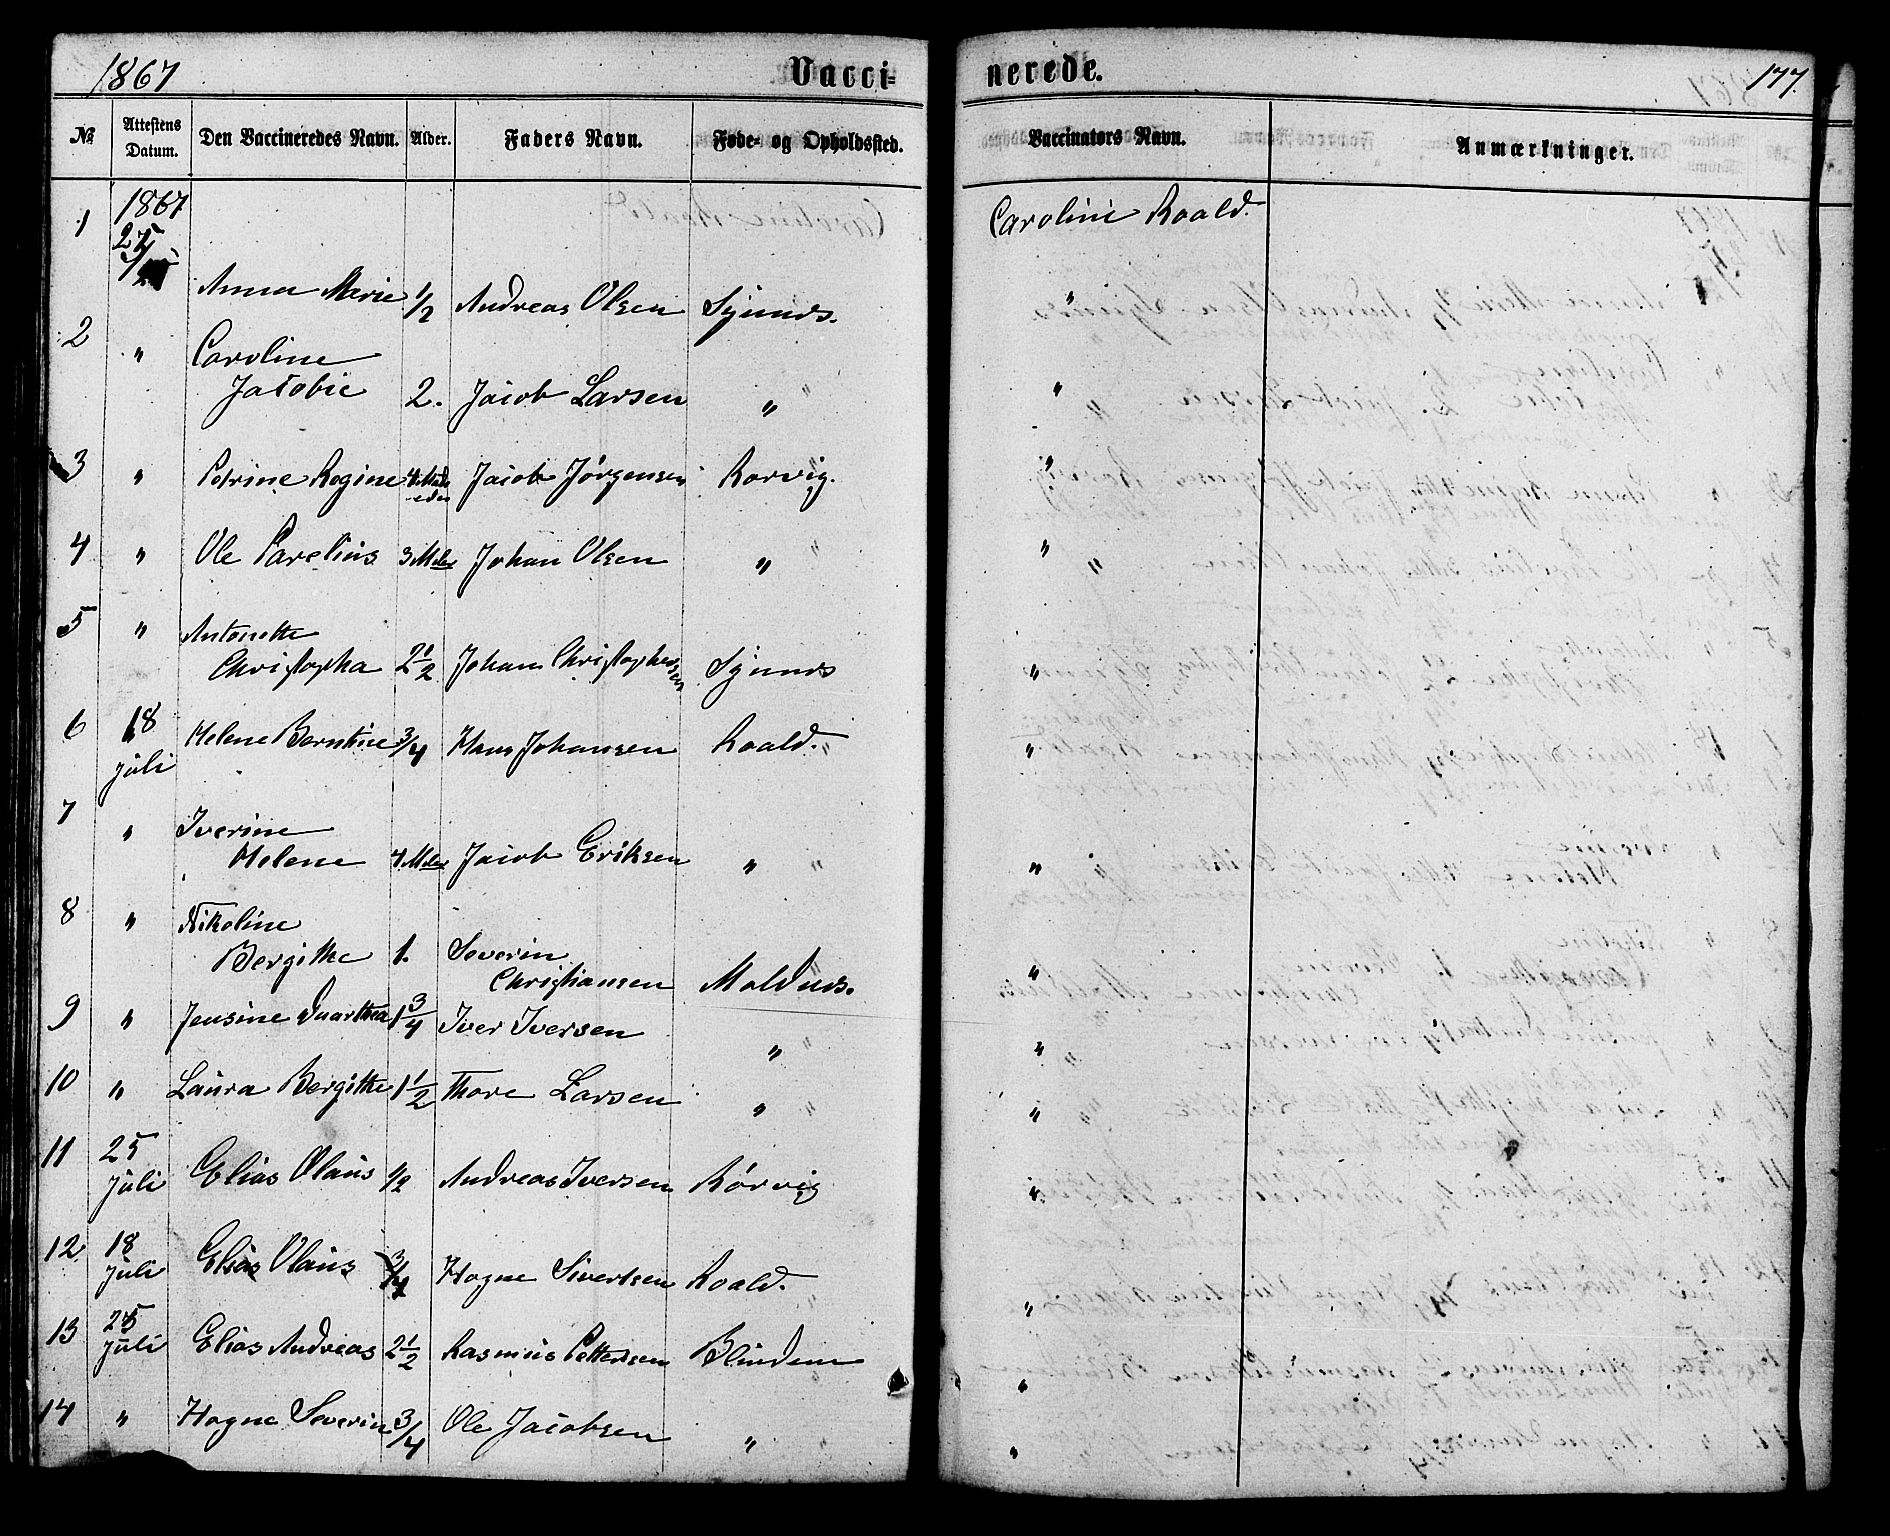 1867 Vacci- nerede. 177.
№ Attestens Datum. Den Vaccineredes Navn. Alder. Faders Navn. Føde- og Opholdssted. Vaccinators Navn. Anmærkninger.
1 1867 Caroline Roald.
Anna Marie 1/2 Andreas Olsen Synnes. "
2 " Caroline
Jacobie 2. Jacob Larsen " "
3 " Petrine Regine 4 Jacob Jörgensen Rorvig. "
4 " Ole Parelius 3 Mder Johan Olsen " "
5 " Antonette
Christopha 2 1/2 Johan Christophersen Synnes "
6 18 Helene Berntine 3/4 Hans Johansen Roald. "
juli
7 " Iverine
Helene 4 Mder Jacob Eriksen " "
8 " Nikoline
Bergithe 1. Severin
Christiansen Moldnes. "
9 " Jensine Duarthea 1 3/4 Iver Iversen " "
10 " Laura Bergithe 1 1/2 Thore Larsen " "
11 25
juli Elias Olaus 1/2 Andreas Iversen Rörvig "
12 18
juli Elias Olaus 3/4 Hogne Sivertsen Roald. "
13 25
juli Elias Andreas 2 1/2 Rasmus Pettersen Blindem "
14 " Hogne Severin 3/4 Ole Jacobsen " "